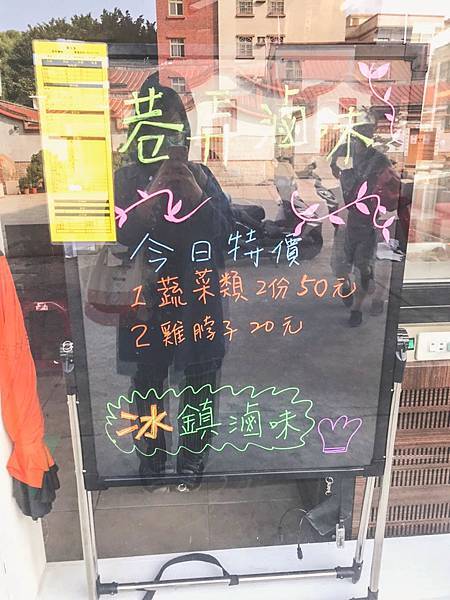 巷弄滷味
今日特價
1 蔬菜類 2份 50元
2 雞脖子 20元
冰鎮滷味